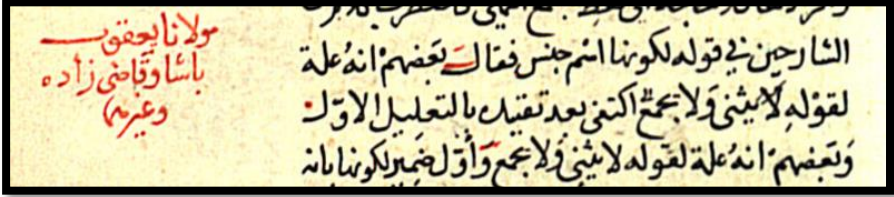 الشارحين في قوله لكونها اسم جنس فقال بعضهم انه علة
لقوله لا يثنى ولا يجمع اكتفى بعد تقييده بالتعليل الاول
وبعضهم انه علة لقوله لا يثنى ولا يجمع وأول ضمير لكونها بانه
مولانا يعقوب
باشا وقاضى زاده
وغيرهما